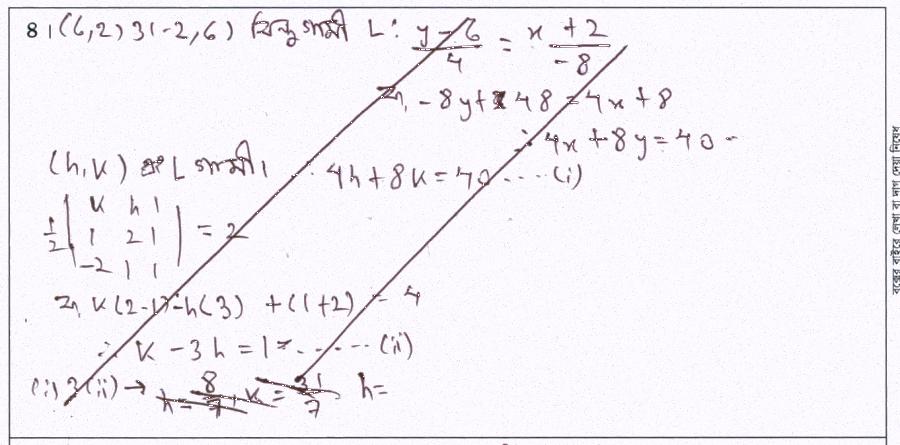 8। (6,2) ও (-2,6) বিন্দুগামী L: (y-6)/4 = (x+2)/-8
বা, -8y+48 = 4x+8
∴ 4x+8y=40
(h,k) L গামী। ∴ 4h+8k=40 .... (i)
1/2 | k h 1 |
| 1 2 1 | = 2
| -2 1 1 |
বা, k(2-1)-h(3) + (1+2) = 4
∴ k - 3h = 1 ...... (ii)
(i) ও (ii) → h = 8/7, k = 31/7 h=
বক্সের বাইরে লেখা বা দাগ দেয়া নিষেধ